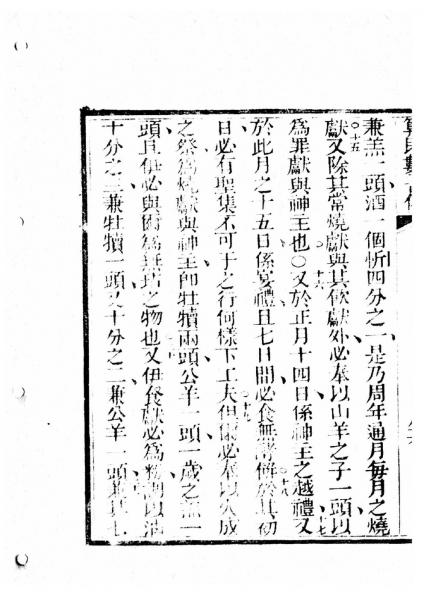 兼羔一頭酒一個忻四分之一是乃周年通月每月之燒
○十五
獻又除其常燒獻與其飲獻外必奉以山羊之子一頭以
爲罪獻與神主也○又於正月十四日係神主之越禮又
十六
十七
於此月之十五日係宴禮且七日間必食無酵餅於其初
十八
日必有聖集不可于之行何樣下工夫但爾必奉以火成
○十九
之祭爲燒獻與神主即牡犢兩頭公羊一頭一歲之羔
頭且伊必與爾爲無玷之物也又伊食獻必爲粉調以油
十分之三兼牡犢一頭又十分之二兼公羊一頭兼其七